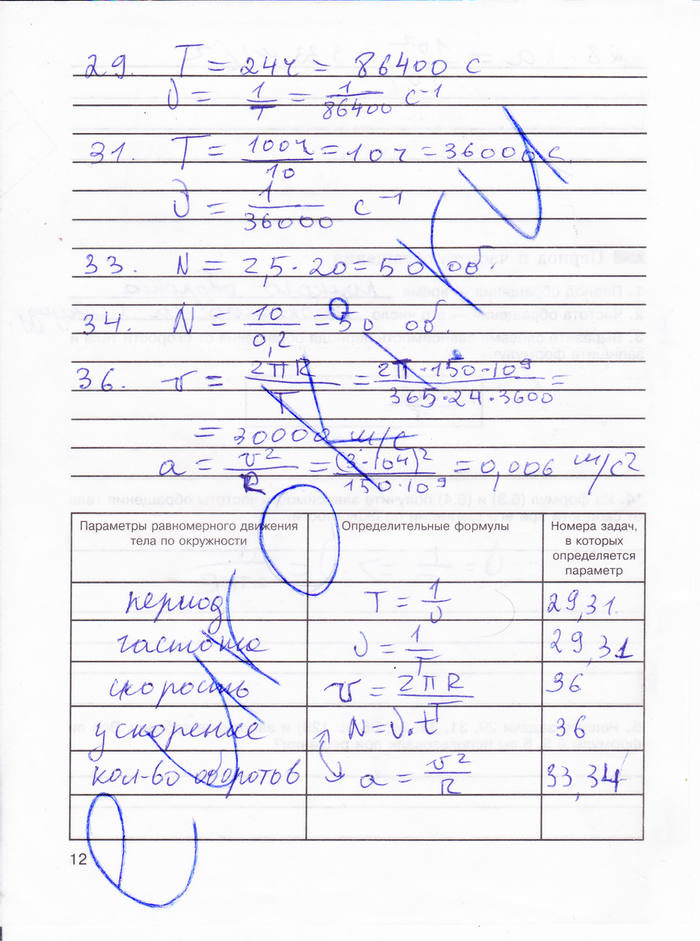 29. T = 24ч = 86400 с
υ = 1/T = 1/86400 с⁻¹
31. T = 100ч/10 = 10 ч = 36000 с.
υ = 1/36000 с⁻¹
33. N = 2,5 · 20 = 50 об.
34. N = 10/0,2 = 50 об.
36. v = 2πR/T = 2π·150·10⁹/365·24·3600 =
= 30000 м/с
a = v²/R = (3·10⁴)²/150·10⁹ = 0,006 м/с²
Параметры равномерного движения тела по окружности Определительные формулы Номера задач, в которых определяется параметр
период T = 1/υ 29,31.
частота υ = 1/T 29,31
скорость v = 2πR/T 36
ускорение N = υ·t 36
кол-во оборотов a = v²/R 33,34
12